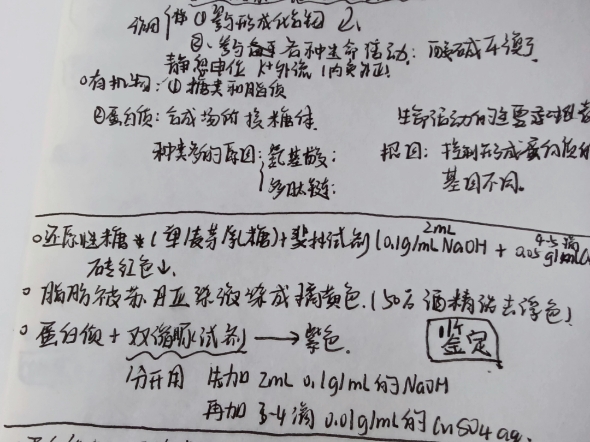 作用 ① 参与形成化合物
② 参与各种生命活动：酸碱平衡
静息电位 K⁺外流（内负外正）
○有机物：① 糖类和脂质
②蛋白质：合成场所 核糖体 生命活动的主要承担者
种类多的原因：氨基酸： 根因：控制形成蛋白质的
多肽链： 基因不同。
○还原性糖 （单/麦芽/乳糖）+ 斐林试剂（0.1g/mL 2mL NaOH + 4-5滴 0.05g/mL
砖红色↓.
○ 脂肪被苏丹Ⅲ染液染成橘黄色.（50%酒精洗去浮色）
○ 蛋白质 + 双缩脲试剂 → 紫色. 鉴定
分开用 先加 2mL 0.1g/mL的NaOH
再加 3-4滴 0.01g/mL的CuSO4 aq.